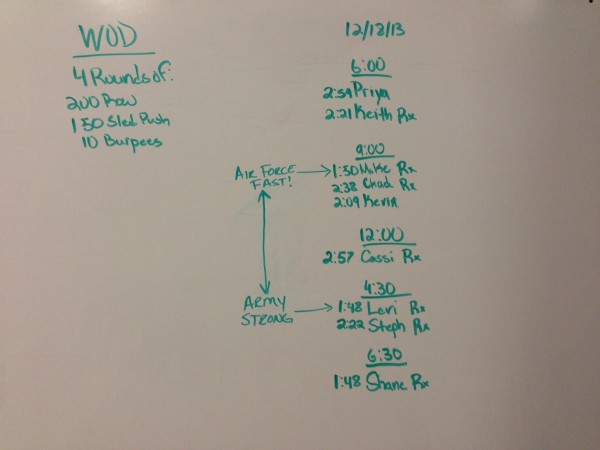 WOD
4 Rounds of:
200 Row
150 Sled Push
10 Burpees
12/18/13
6:00
2:59 Priya
2:21 Keith Rx
9:00
AIR FORCE
FAST!
1:50 Mike Rx
2:38 Chad Rx
2:09 Kevin
12:00
2:57 Cassi Rx
4:30
ARMY
STRONG
1:48 Levi Rx
2:22 Steph Rx
6:30
1:48 Shane Rx